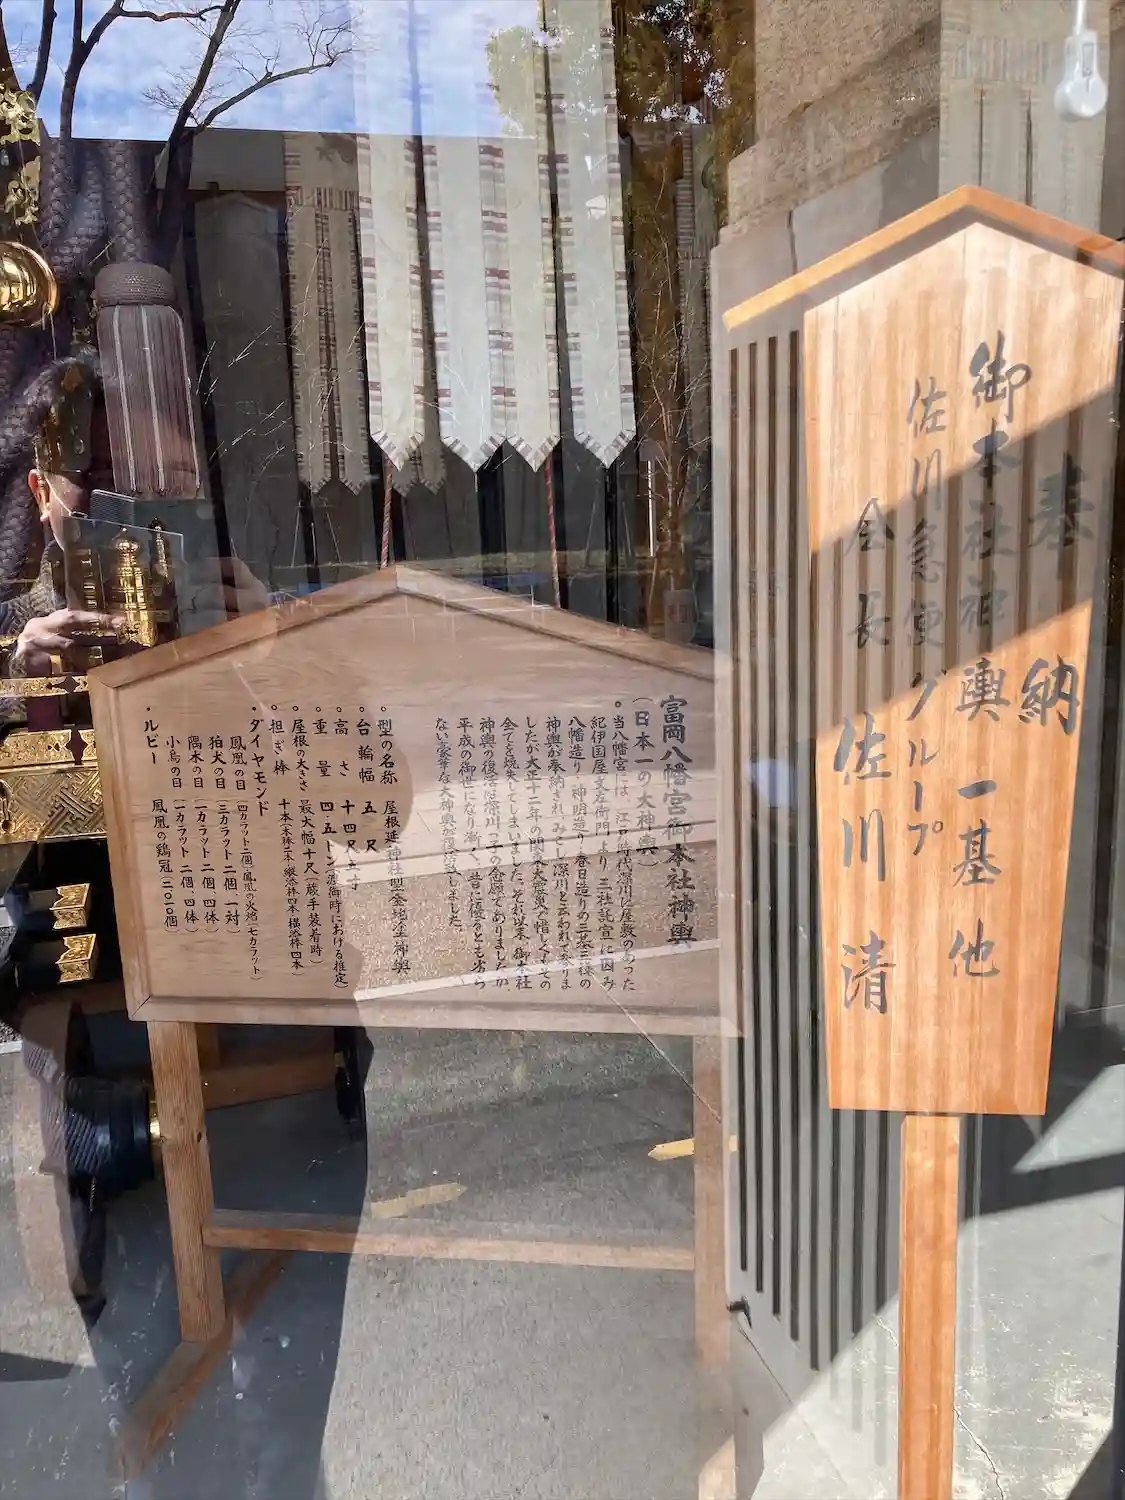 奉納
御本社神輿一基他
佐川急便グループ
会長 佐川清
富岡八幡宮御本社神輿
(日本一の大神輿)
。当八幡宮には、江戸時代深川に屋敷のあった
紀伊国屋文左衛門より、三社託宣に因み
八幡造り・神明造り・春日造りの三基三様の
神輿が奉納され、みこし深川と云われて参りま
したが大正十二年の関東大震災で惜しくもその
全てを焼失してしまいました。それ以来、御本社
神輿の復活は深川っ子の念願でありましたが、
平成の御世になり漸く、昔に優るとも劣ら
ない豪華な大神輿が復活致しました。
・型の名称 屋根延神社型金地塗神輿
・台輪幅 五尺
・高さ 十四尺五寸
・重量 四・五トン(渡御時における推定)
・屋根の大きさ 最大幅十尺(蕨手装着時)
・担ぎ棒 十本(本棒二本・縦添棒四本・横添棒四本)
・ダイヤモンド
鳳凰の目 (四カラット二個)鳳凰の火焔(七カラット)
狛犬の目 (三カラット二個 一対)
隅木の目 (一カラット二個・四体)
小鳥の目 (一カラット二個・四体)
・ルビー 鳳凰の鶏冠(二〇一〇個)